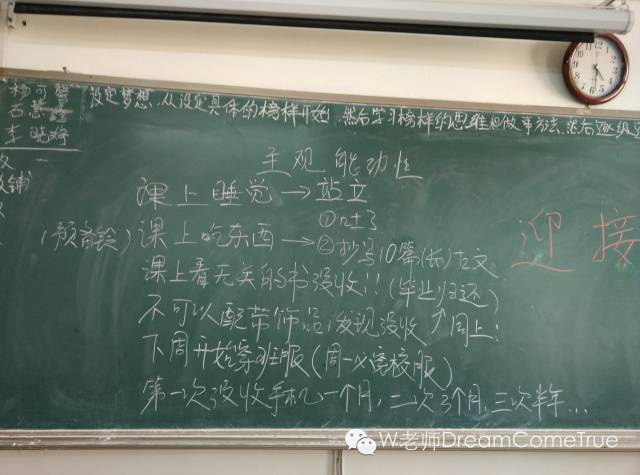 设定梦想，从设定具体的榜样开始，然后学习榜样的思维和做事方法，然后逐级
主观能动性
课上睡觉→站立
①吐了
(预备铃)课上吃东西→②抄写10篇(长)古文
课上看无关的书没收!!(毕业归还)
不可以配带饰品，发现没收↑同上!
下周开始穿班服(周一必穿校服)
第一次没收手机一个月，二次3个月，三次半年...
迎接
W老师DreamComeTrue